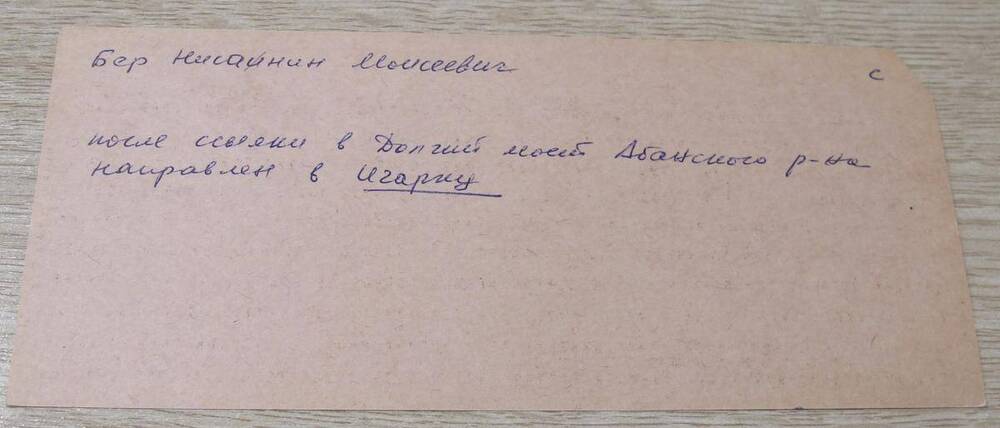 Бер Нисаннин Моисеевич
с
после ссылки в Долгий мост Абанского р-на
направлен в Игарку